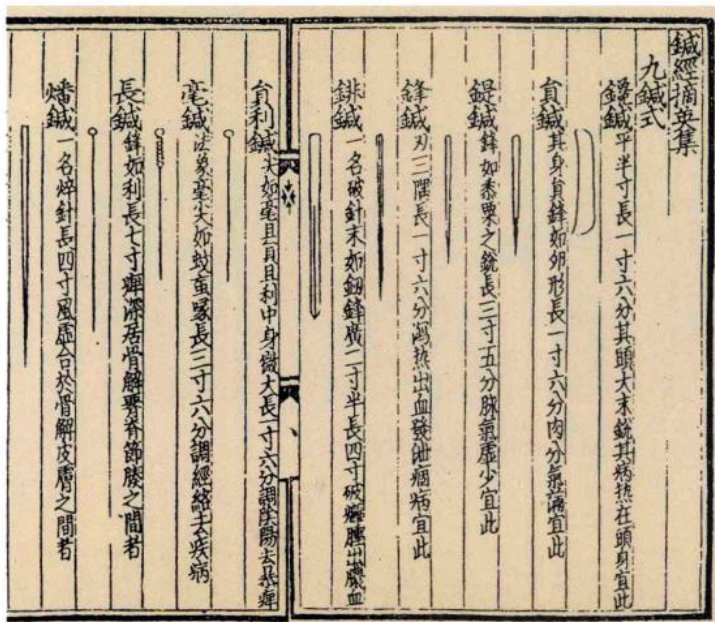 鍼經摘英集
九鍼式
鑱鍼 平半寸長一寸六分其頭大末銳其病热在頭身宜此
負鍼 其身負鋒如卵形長一寸六分肉分氣滿宜此
鍉鍼 鋒如黍粟之銳長三寸五分脉氣虛少宜此
鋒鍼 刃三隅長一寸六分瀉热出血發泄痼病宜此
鈹鍼 一名破針末如劔鋒廣二寸半長四寸破癰腫出膿血
負利鍼 尖如毫且負且利中身微大長一寸六分調陰陽去暴痺
毫鍼 法象毫尖如蚊䖟喙長三寸六分調經絡去疾病
長鍼 鋒如利長七寸痺深居骨解腰脊節腠之間者
燔鍼 一名焠針長四寸風虛合於骨解皮膚之間者